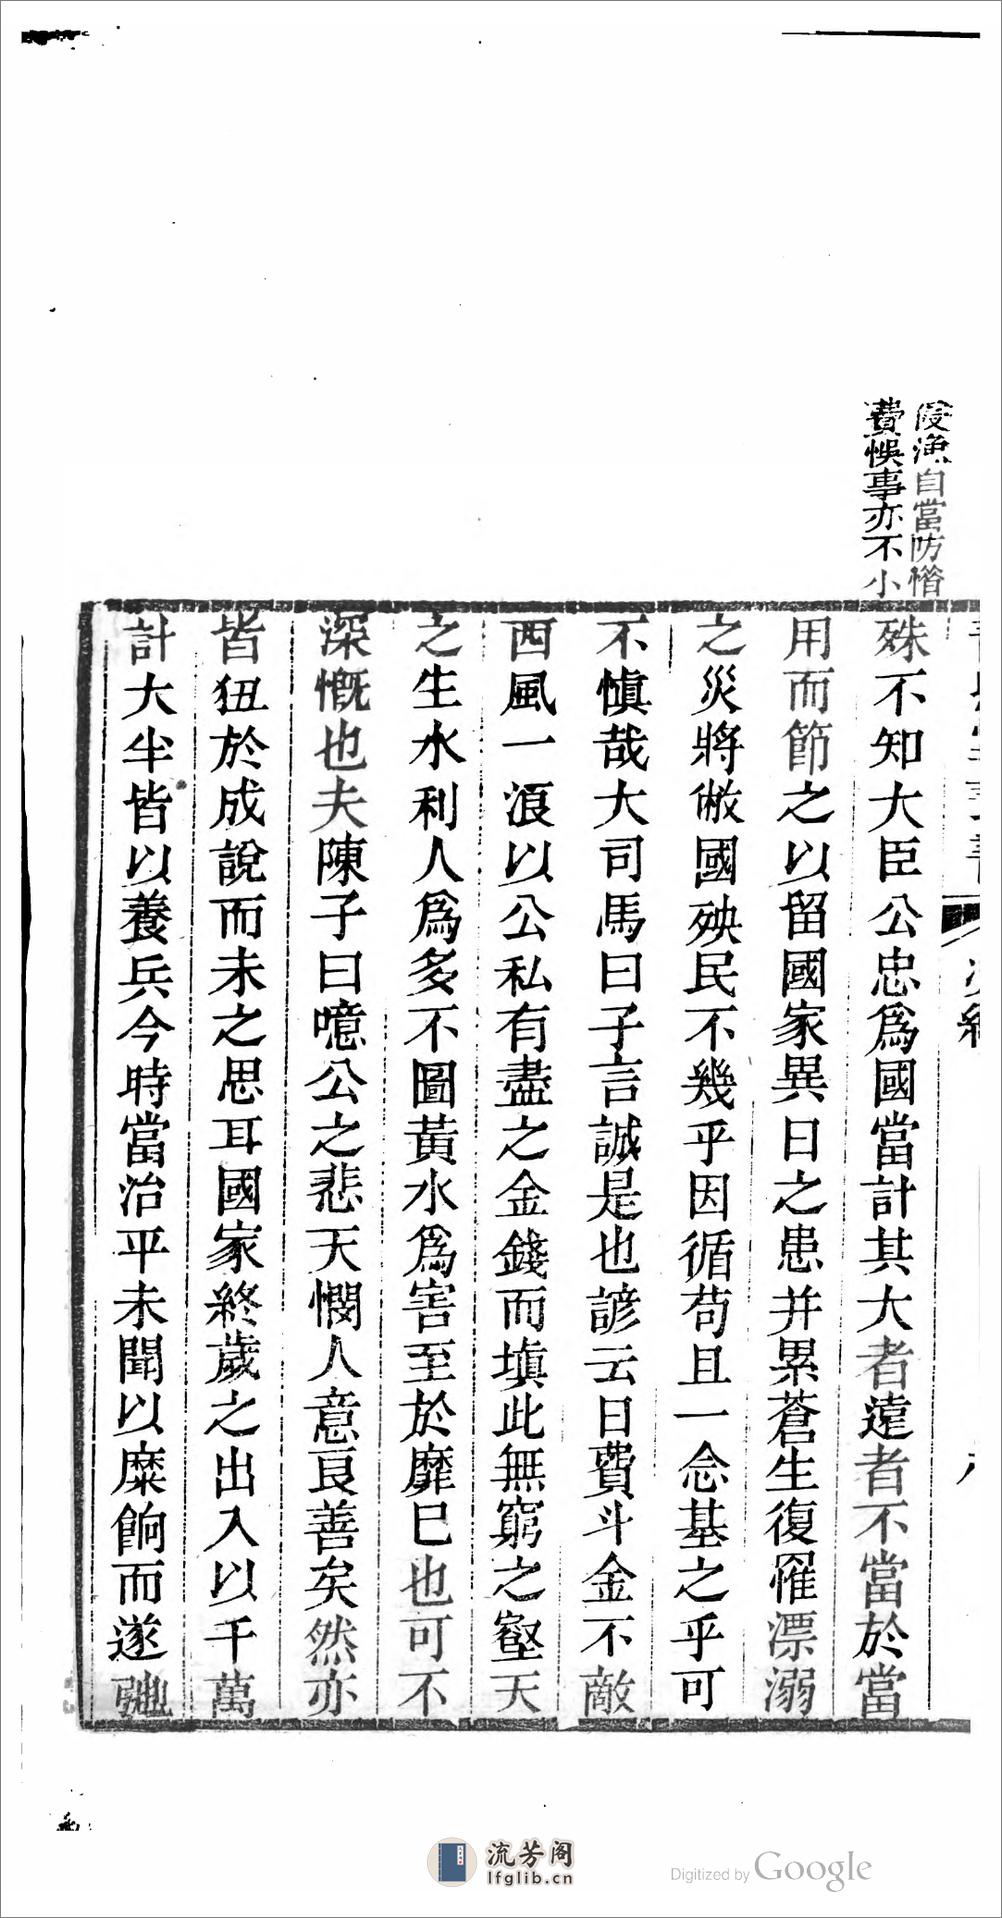 侵漁自當防惜
費悞事亦不小
殊不知大臣公忠爲國當計其大者遠者不當於當
用而節之以留國家異日之患并累蒼生復罹漂溺
之災將敝國殃民不幾乎因循苟且一念基之乎可
不愼哉大司馬曰子言誠是也諺云日費斗金不敵
西風一浪以公私有盡之金錢而塡此無窮之壑天
之生水利人爲多不圖黃水爲害至於靡已也可不
深慨也夫陳子曰噫公之悲天憫人意良善矣然亦
皆狃於成說而未之思耳國家終歲之出入以千萬
計大半皆以養兵今時當治平未聞以糜餉而遂弛
流芳阁
lfglib.cn
Digitized by Google